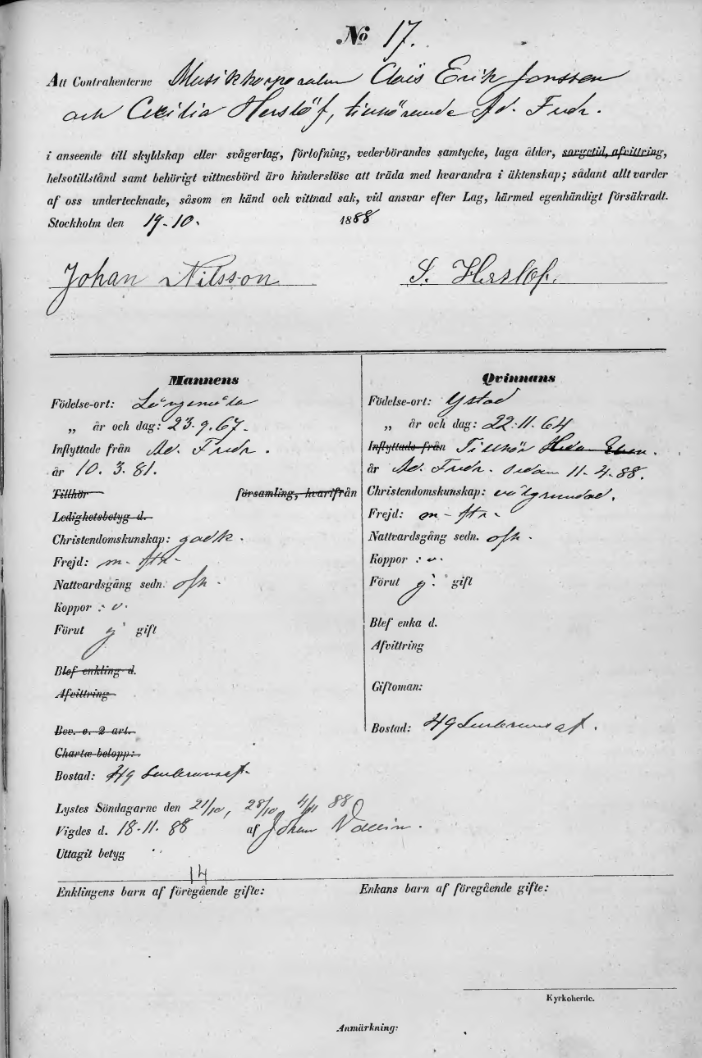 No 17.
Att Contrahenterne Musikkorporalen Claës Erik Jonsson
och Cecilia Herslöf, tillhörande Ad. Fredr.
i anseende till skyldskap eller svågerlag, förlofning, vederbörandes samtycke, laga ålder, sorgetid, afvittring,
helsotillstånd samt behörigt vittnesbörd äro hinderslöse att träda med hvarandra i äktenskap; sådant allt varder
af oss undertecknade, såsom en känd och vittnad sak, vid ansvar efter Lag, härmed egenhändigt försäkradt.
Stockholm den 19.10. 1888
Johan Nilsson S. Herslöf.
Mannens
Födelse-ort:
„ år och dag: 23.9.67.
Inflyttade från Ad. Fredr.
år 10.3.81.
Tillhör församling, hvarifrån
Ledighetsbetyg d.
Christendomskunskap: godk.
Frejd:
Nattvardsgång sedn. ofta.
Koppor: v.
Förut ej gift
Blef enkling d.
Afvittring
Bev. o. 2 art.
Chartæ belopp:
Bostad: 49
Qvinnans
Födelse-ort: Ystad
„ år och dag: 22.11.64
Inflyttade från Tillhör
år Ad. Fredr. sedan 11.4.88.
Christendomskunskap: välgrundad.
Frejd:
Nattvardsgång sedn. oft.
Koppor: v.
Förut ej gift
Blef enka d.
Afvittring
Giftoman:
Bostad: 49
Lystes Söndagarne den 21/10, 28/10, 4/11 88
Vigdes d. 18.11.88 af Johan Wallin.
Uttagit betyg
14
Enklingens barn af föregående gifte: Enkans barn af föregående gifte:
Kyrkoherde.
Anmärkning: